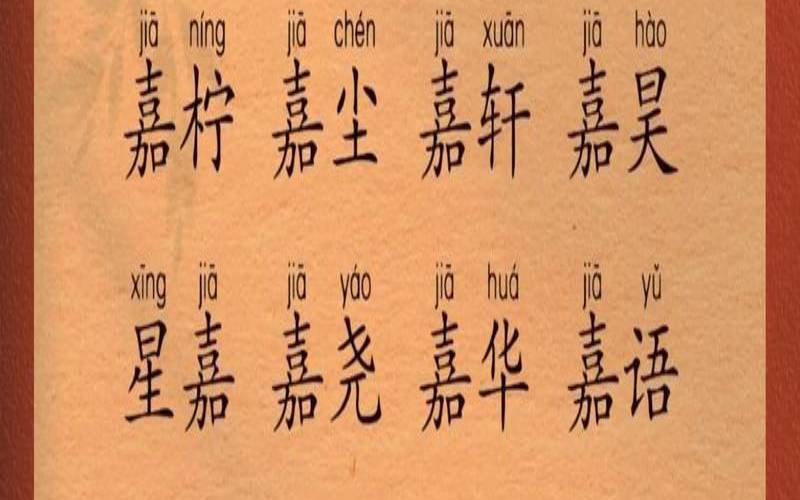 jiā níng jiā chén jiā xuān jiā hào
嘉柠 嘉尘 嘉轩 嘉昊
xīng jiā jiā yáo jiā huá jiā yǔ
星嘉 嘉尧 嘉华 嘉语